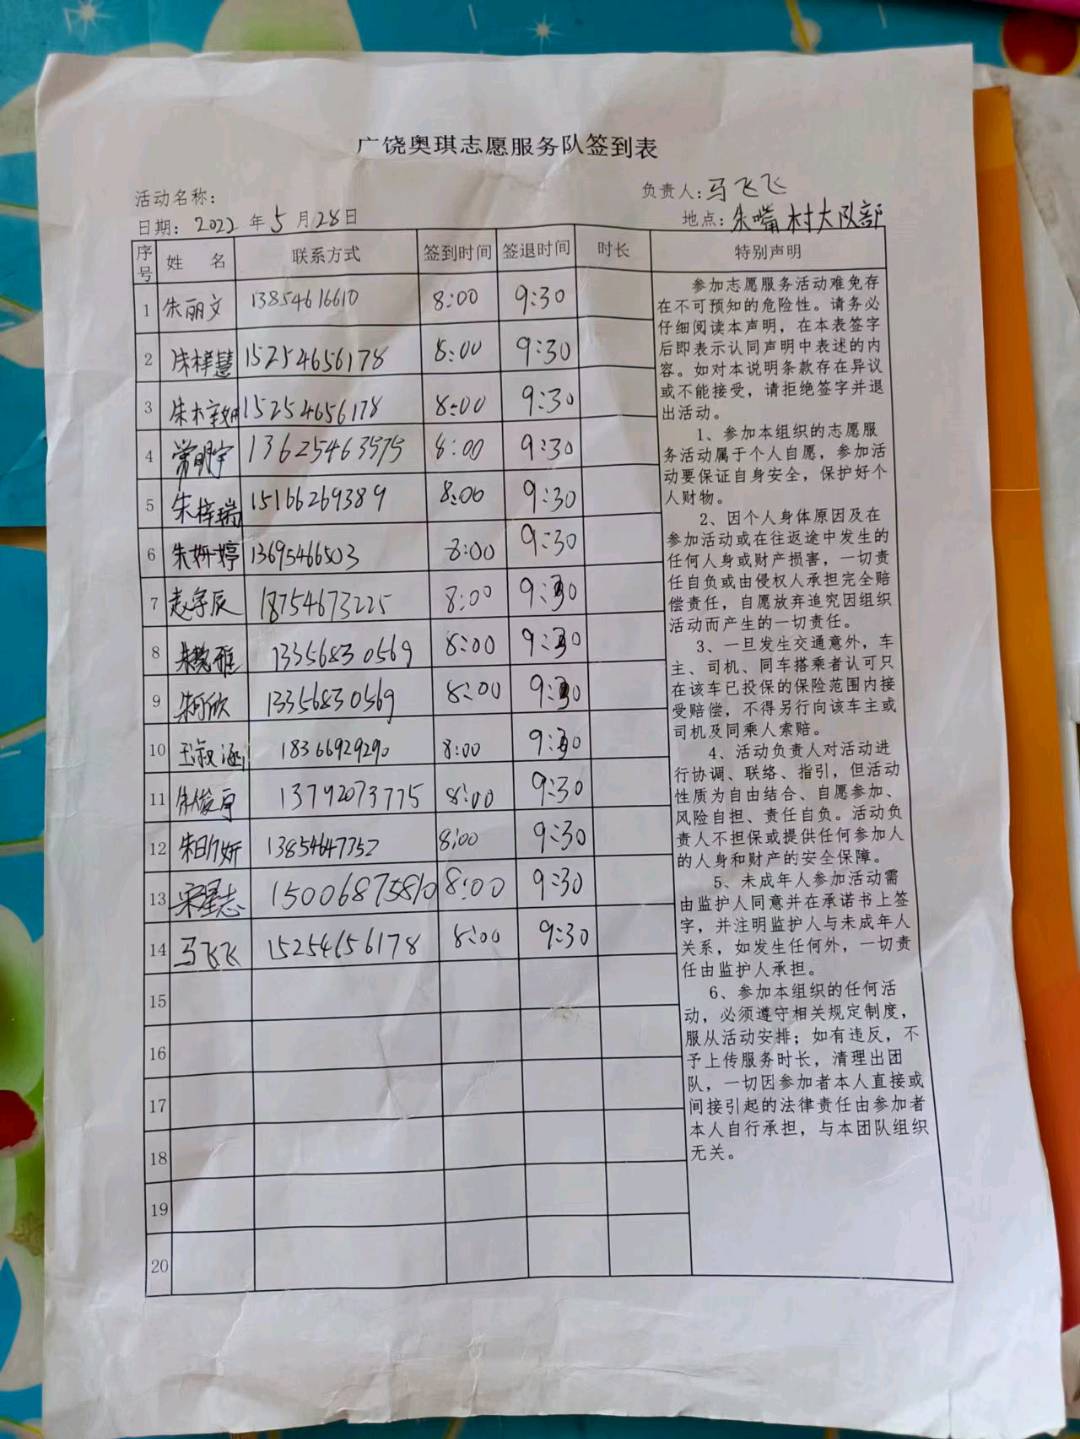 广饶奥琪志愿服务队签到表
活动名称：
负责人：马飞飞
日期：2022 年 5 月 28 日
地点：朱嘴村大队部
序号 姓 名 联系方式 签到时间 签退时间 时长 特别声明
1 朱丽文 13854616610 8:00 9:30
2 朱梓慧 15254656178 8:00 9:30
3 15254656178 8:00 9:30
4 常明宇 13625463575 8:00 9:30
5 朱梓瑞 15166269389 8:00 9:30
6 朱妍婷 13695466503 8:00 9:30
7 赵宇辰 18754673225 8:00 9:30
8 13356830569 8:00 9:30
9 朱可欣 13356830569 8:00 9:30
10 王淑涵 18366929290 8:00 9:30
11 13792073775 8:00 9:30
12 13854647752 8:00 9:30
13 宋星志 15006875810 8:00 9:30
14 马飞飞 15254656178 8:00 9:30
15
16
17
18
19
20
参加志愿服务活动难免存
在不可预知的危险性。请务必
仔细阅读本声明，在本表签字
后即表示认同声明中表述的内
容。如对本说明条款存在异议
或不能接受，请拒绝签字并退
出活动。
1、参加本组织的志愿服
务活动属于个人自愿，参加活
动要保证自身安全，保护好个
人财物。
2、因个人身体原因及在
参加活动或在往返途中发生的
任何人身或财产损害，一切责
任自负或由侵权人承担完全赔
偿责任，自愿放弃追究因组织
活动而产生的一切责任。
3、一旦发生交通意外，车
主、司机、同车搭乘者认可只
在该车已投保的保险范围内接
受赔偿，不得另行向该车主或
司机及同乘人索赔。
4、活动负责人对活动进
行协调、联络、指引，但活动
性质为自由结合、自愿参加、
风险自担、责任自负。活动负
责人不担保或提供任何参加人
的人身和财产的安全保障。
5、未成年人参加活动需
由监护人同意并在承诺书上签
字，并注明监护人与未成年人
关系，如发生任何外，一切责
任由监护人承担。
6、参加本组织的任何活
动，必须遵守相关规定制度，
服从活动安排；如有违反，不
予上传服务时长，清理出团
队，一切因参加者本人直接或
间接引起的法律责任由参加者
本人自行承担，与本团队组织
无关。